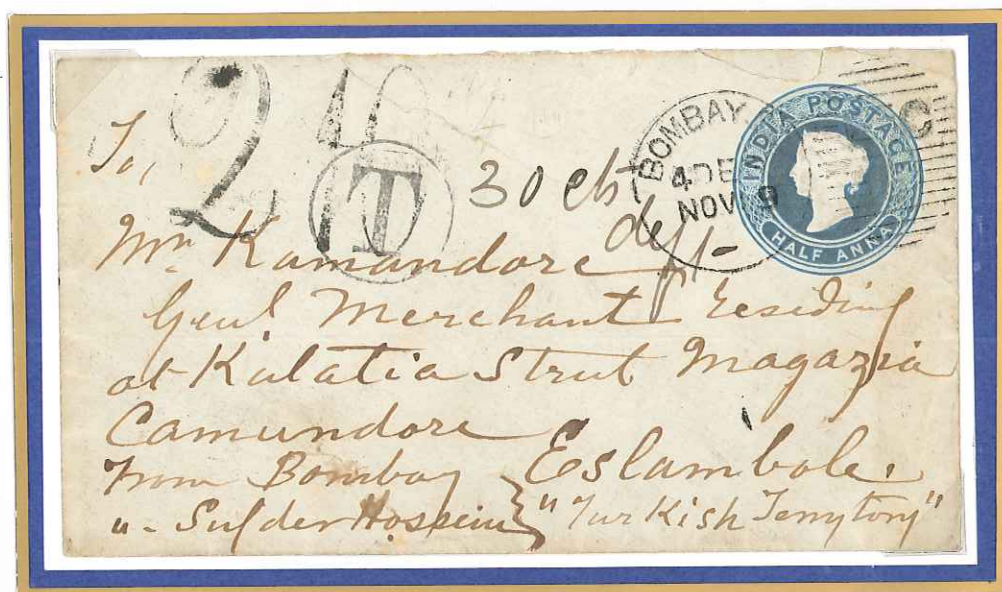 2
T
30 cts
deft
BOMBAY
4 DE
NOV 9
INDIA POSTAGE
HALF ANNA
To,
Mr. Kamandore
Genl. Merchant residing
at Kalatia Street Magazzia
Camundore
Eslambole.
From Bombay
"- Sufder Hossein } "Turkish Terrytory"